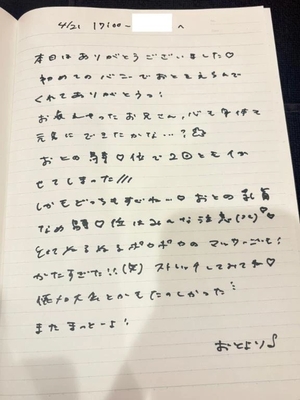 4/21 17:00~ へ
本日はありがとうございました♡
初めてのバニーでおとをえらんで
くれてありがとうっ!
お疲れやったお兄さん、心も身体も
元気にできたかな…?
おとの騎♡位で2回ともイか
せてしまった///
しかもどっちもすごいー♡ おとの乳首
なめ騎♡位はみんな注意(笑)♡
そしてぬるぬるポカポカのマッサージも!
かたすぎた!!(笑) ストレッチしてみてね♡
大会とかもたのしかった
またまっとーよ!
おとより♪